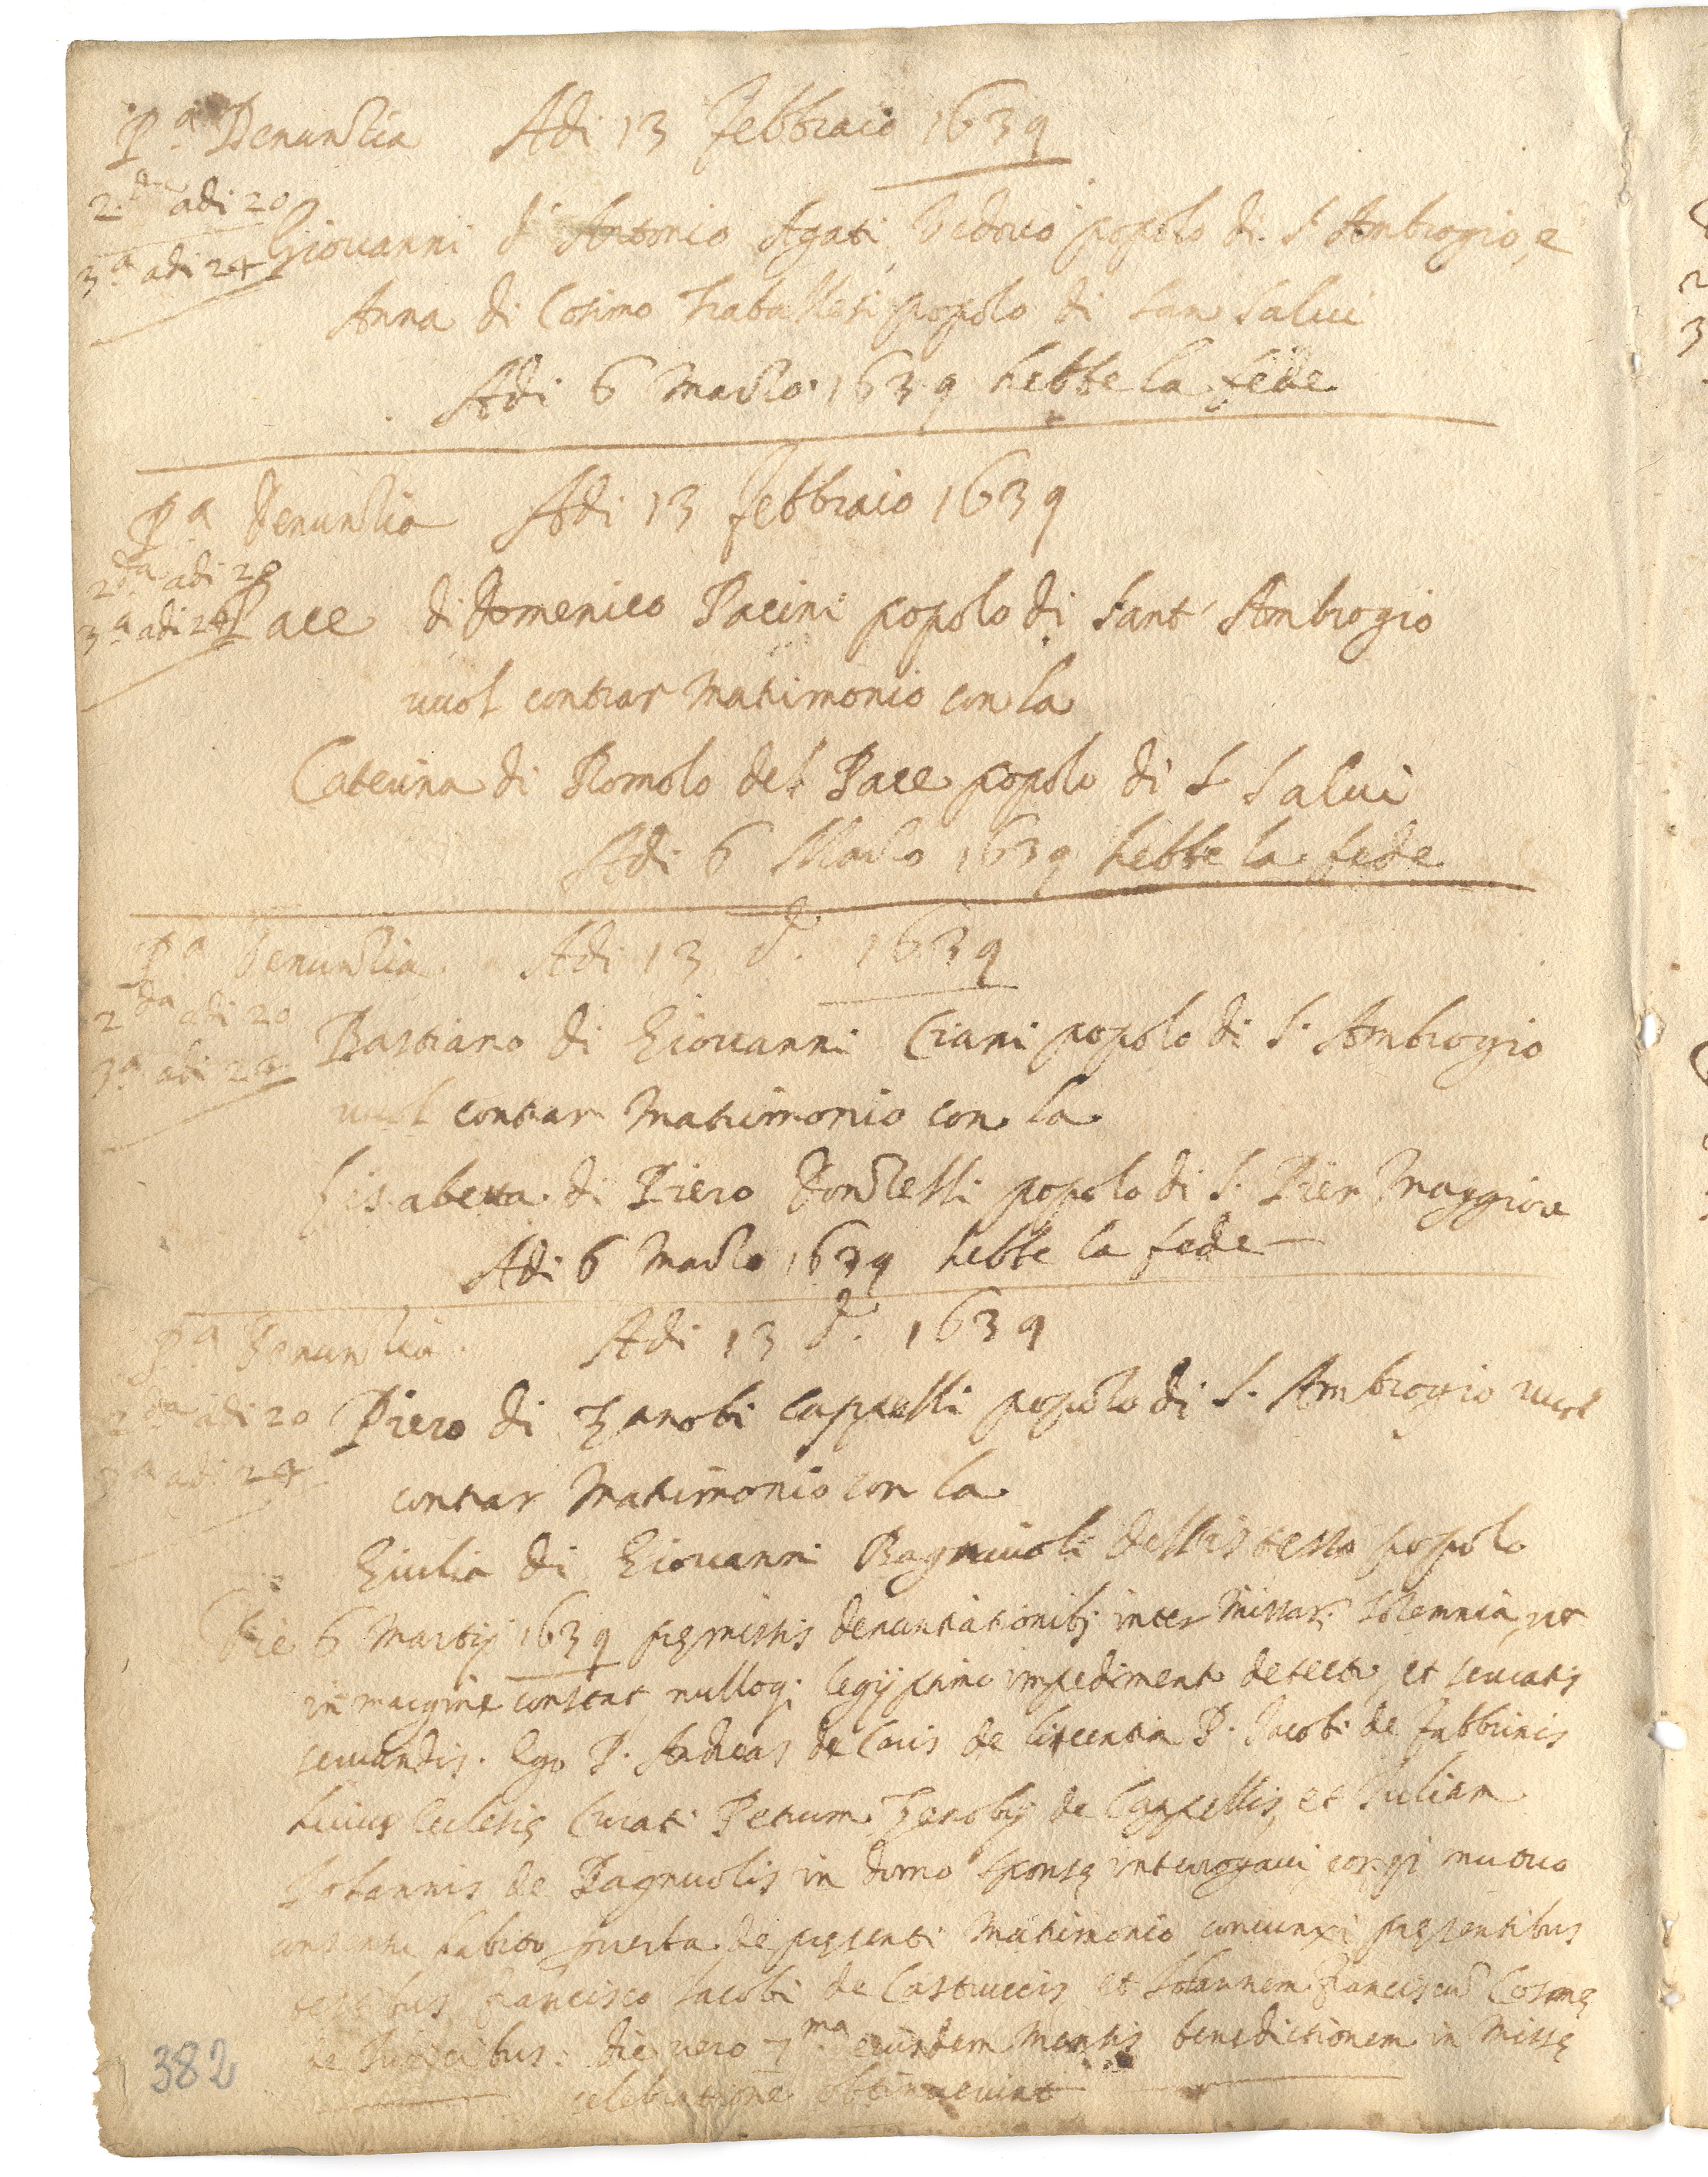 P.ª Denuntia Adi 13 Febbraio 1639
2.da adi 20
Giovanni d'Antonio Agati Vedovo popolo di S Ambrogio, e
3.ª adi 24
Anna di Cosimo Traballesi popolo di San Salvi
Adi 6 Marzo 1639 hebbe la fede
P.ª Denuntia Adi 13 febbraio 1639
2da adi 20
3.ª adi 24 Pace di Domenico Pacini popolo di Sant' Ambrogio
vuol contrar Matrimonio con la
Caterina di Romolo del Pace popolo di S Salvi
Adi 6 Marzo 1639 hebbe la fede
P.ª Denuntia Adi 13 d.º 1639
2da adi 20
Bastiano di Giovanni Ciani popolo di S. Ambrogio
3.ª adi 24
vuol contrar Matrimonio con la
Lisabetta di Piero Donzelli popolo di S. Pier Maggiore
Adi 6 Marzo 1639 hebbe la fede
P.ª Denuntia Adi 13 d.º 1639
2da adi 20 Piero di Zanobi Cappelli popolo di S. Ambrogio vuol
3.ª adi 24
contrar Matrimonio con la
Giulia di Giovanni Bagnuoli dell'istesso popolo
Die 6 Martij 1639 premissis denuntiationib; inter Missar. Solemnia, ut
in margine constat nulloq; legiptimo impedimento detecto, et servatis
servandis. Ego P. Andreas de de licentia P. Jacobi de Fabbrinis
huius Eccleseę Curati Petrum Zenobij de Cappellis, et Juliam
Johannis de Bagnuolis in domo sponsę interrogavi, eorq; mutuo
consensu habito per verba de pręsenti Matrimonio coniunxi pręsentibus
testibus Francisco Jacobi de Castruccis et Johannem Franciscum Cosmę
de die vero 7.ma eiusdem Mensis benedictionem in Missę
celebratione obtinuerunt
382